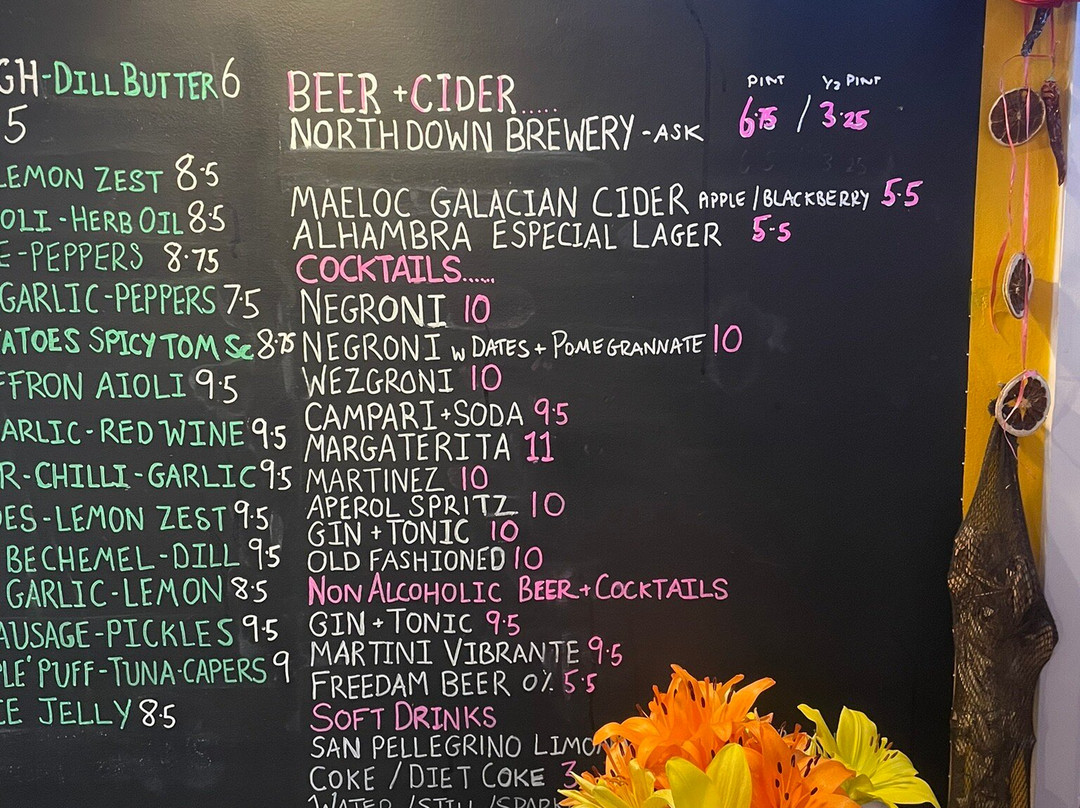 GH-DILL BUTTER 6
5
LEMON ZEST 8.5
OLI-HERB OIL 8.5
E-PEPPERS 8.75
GARLIC-PEPPERS 7.5
ATOES SPICY TOM Sc 8.75
FFRON AIOLI 9.5
ARLIC-RED WINE 9.5
R-CHILLI-GARLIC 9.5
DES-LEMON ZEST 9.5
BECHEMEL-DILL 9.5
GARLIC-LEMON 8.5
AUSAGE-PICKLES 9.5
PLE' PUFF-TUNA-CAPERS 9
CE JELLY 8.5
PINT ½ PINT
BEER + CIDER.....
6.75 / 3.25
NORTHDOWN BREWERY - ASK
MAELOC GALACIAN CIDER APPLE / BLACKBERRY 5.5
ALHAMBRA ESPECIAL LAGER 5.5
COCKTAILS......
NEGRONI 10
NEGRONI w DATES + POMEGRANNATE 10
WEZGRONI 10
CAMPARI + SODA 9.5
MARGATERITA 11
MARTINEZ 10
APEROL SPRITZ 10
GIN + TONIC 10
OLD FASHIONED 10
NON ALCOHOLIC BEER + COCKTAILS
GIN + TONIC 9.5
MARTINI VIBRANTE 9.5
FREEDAM BEER 0% 5.5
SOFT DRINKS
SAN PELLEGRINO LIMON
COKE / DIET COKE 3
WATER / STILL / SPARK